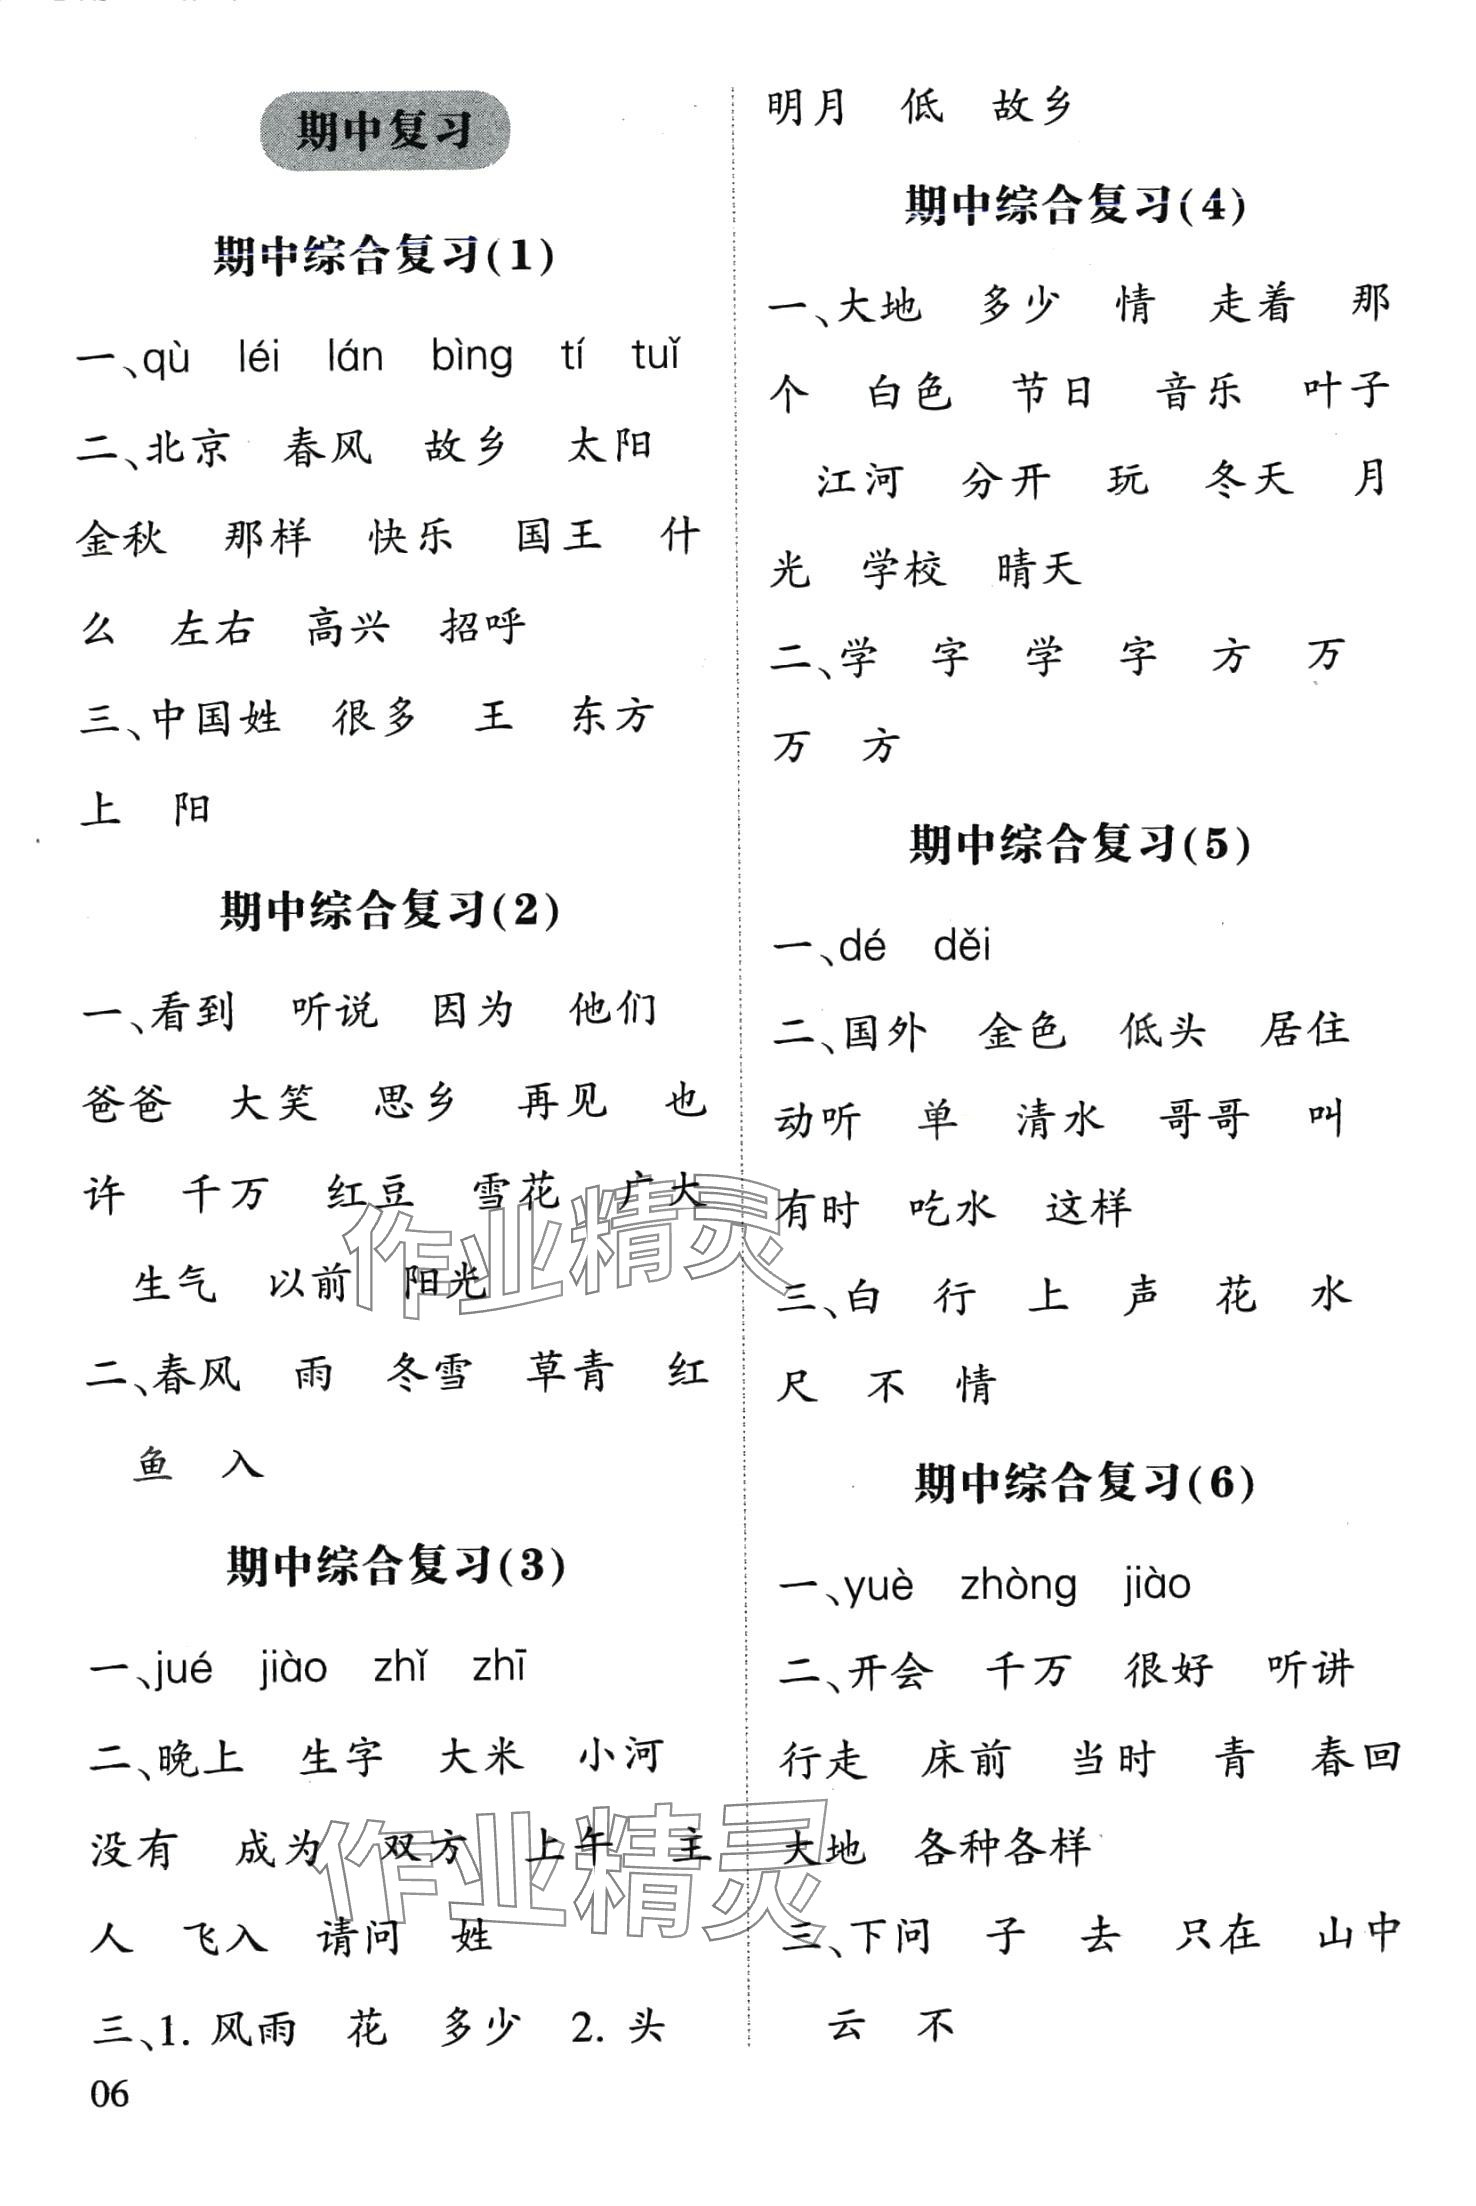 期中复习
期中综合复习(1)
一、qù léi lán bìng tí tuǐ
二、北京 春风 故乡 太阳
金秋 那样 快乐 国王 什
么 左右 高兴 招呼
三、中国姓 很多 王 东方
上 阳
期中综合复习(2)
一、看到 听说 因为 他们
爸爸 大笑 思乡 再见 也
许 千万 红豆 雪花 广大
生气 以前 阳光
二、春风 雨 冬雪 草青 红
鱼 入
期中综合复习(3)
一、jué jiào zhǐ zhī
二、晚上 生字 大米 小河
没有 成为 双方 上午 主
人 飞入 请问 姓
三、1. 风雨 花 多少 2. 头
06
明月 低 故乡
期中综合复习(4)
一、大地 多少 情 走着 那
个 白色 节日 音乐 叶子
江河 分开 玩 冬天 月
光 学校 晴天
二、学 字 学 字 方 万
万 方
期中综合复习(5)
一、dé děi
二、国外 金色 低头 居住
动听 单 清水 哥哥 叫
有时 吃水 这样
三、白 行 上 声 花 水
尺 不 情
期中综合复习(6)
一、yuè zhòng jiào
二、开会 千万 很好 听讲
行走 床前 当时 青 春回
大地 各种各样
三、下问 子 去 只在 山中
云 不
作业精灵
作业精灵